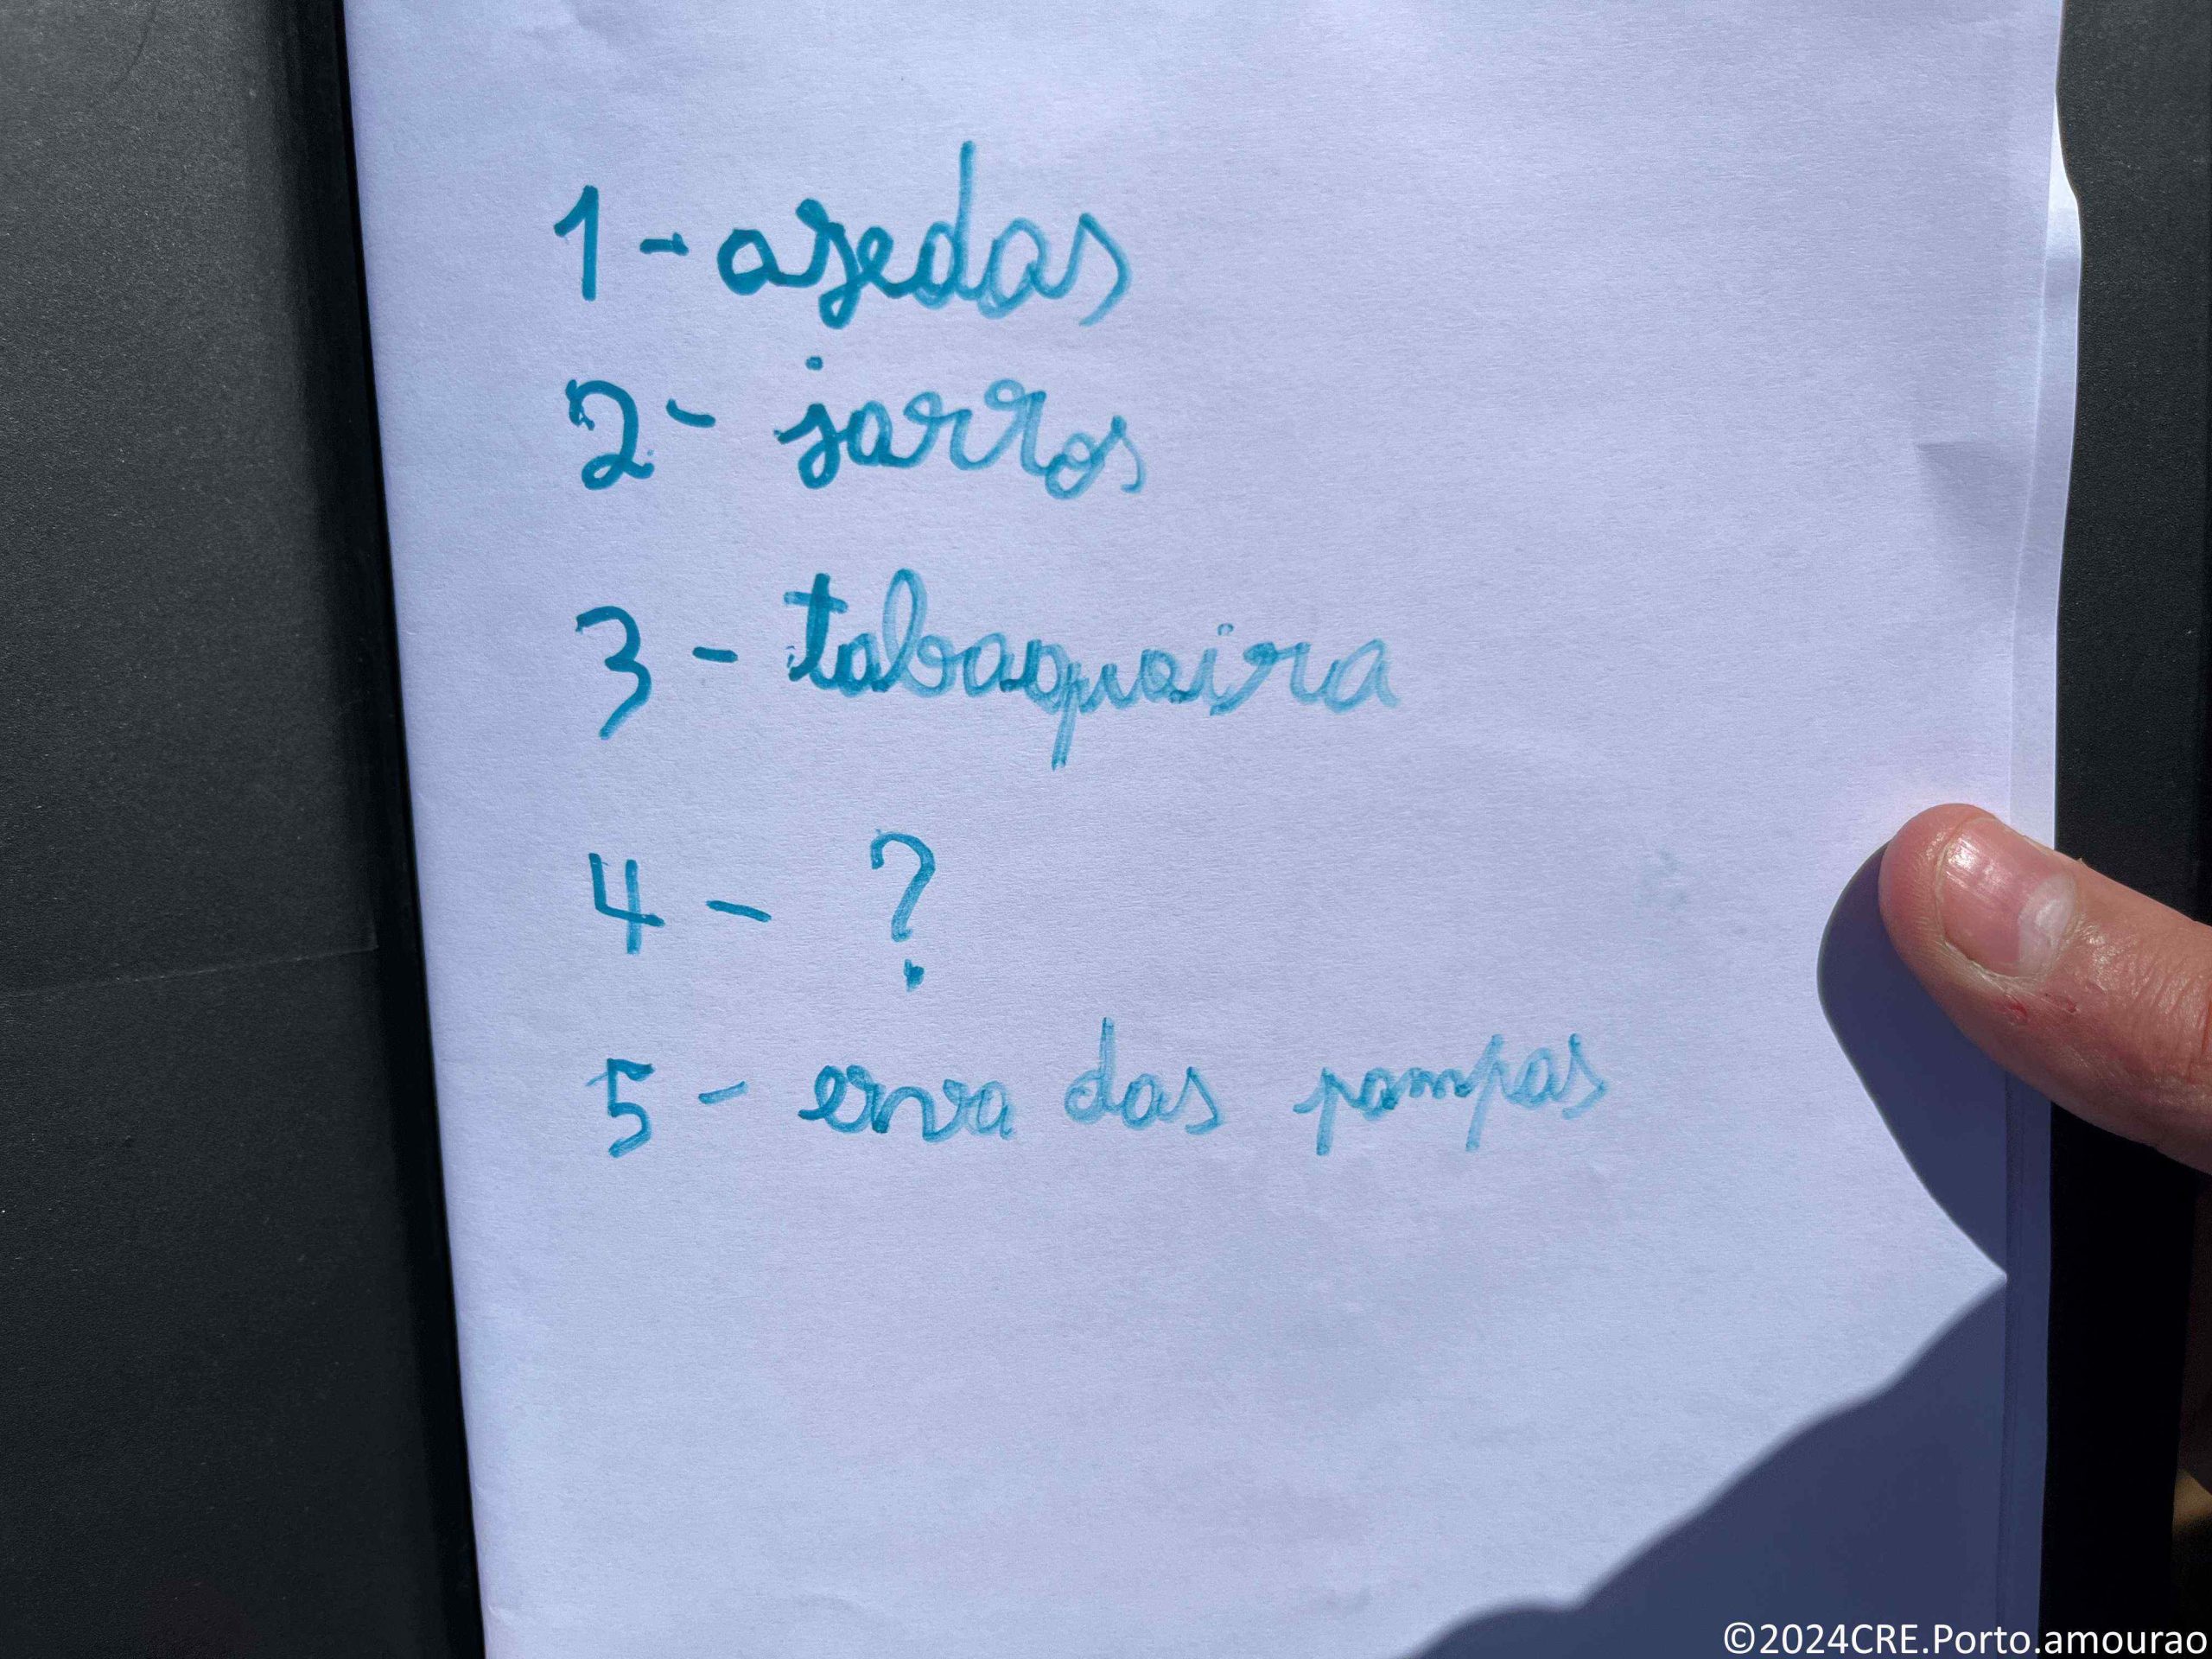 1 - azedas
2 - jarros
3 - tabaqueira
4 - ?
5 - erva das pampas
©2024CRE.Porto.amourao